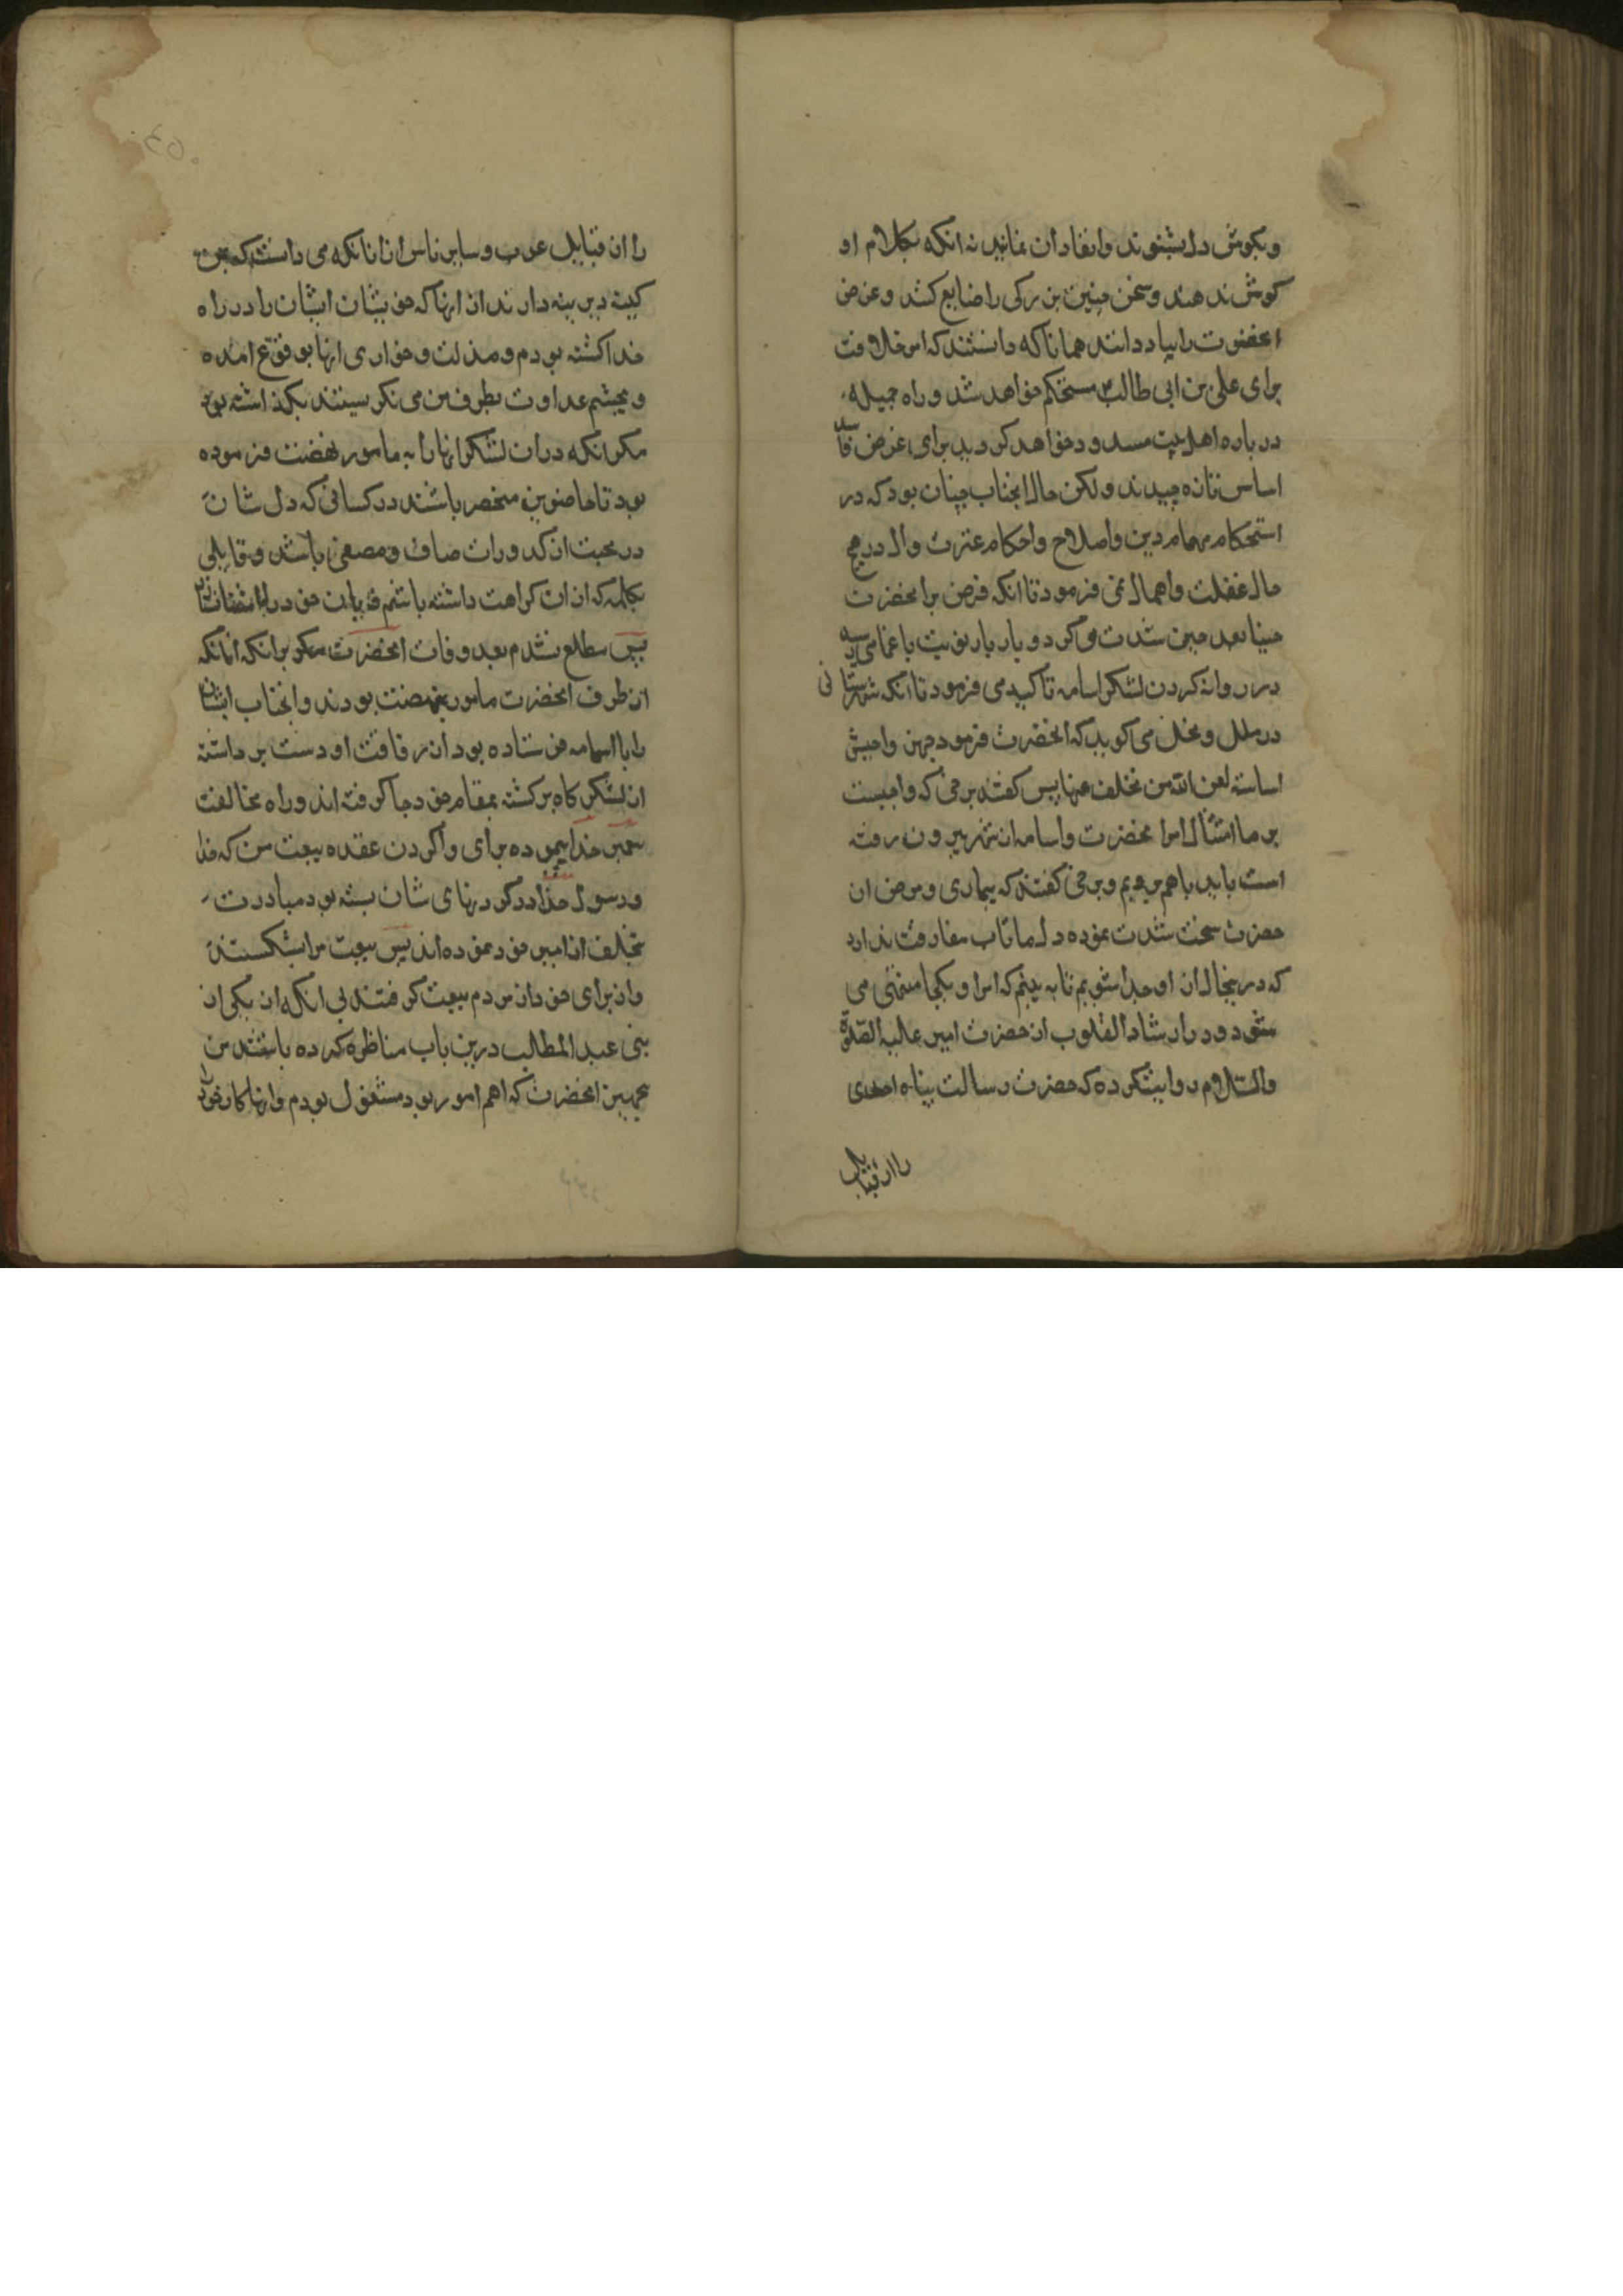 وبکوش دل بشنوند وانقاد ان نمایند نه انکه بکلام او
کوش ندهند وسخن چنین بزرکی را ضایع کنند وغرض
انحضرت را بیاد دانند همانا که دانستند که امر خلافت
برای علی بن ابی طالب مستحکم خواهد شد وراه حیله
در باره اهل بیت مسدود خواهد کردید برای غرض فاسد
اساس تازه چیدند ولکن حال انجناب چنان بود که در
استحکام مهمام دین واصلاح واحکام عترت وال در هیچ
حال غفلت واهمال نمی فرمود تا انکه مرض بر انحضرت
حینا بعد حین شدت می کرد وبار بار نوبت باغما می رسید
در روانه کردن لشکر اسامه تاکید می فرمود تا انکه شهرستانی
در ملل ونحل می کوید که انحضرت فرمود جهزوا جیش
اسامة لعن الله من تخلف عنها پس کفتند برخی که واجبست
بر ما امتثال امر انحضرت واسامه از شهر بیرون رفته
است باید باهم برویم وبرخی کفتند که بیماری ومرض ان
حضرت سخت شدت نموده دل ما تاب مفارقت ندارد
که درینحال از او جدا شویم تا به بینم که امر او بکجا منتهی می
شود ودر ارشاد القلوب از حضرت امیر علیه الصلوة
والسلام روایت کرده که حضرت رسالت پناه احدی
را از قبایل
را از قبایل عرب وسایر ناس از انانکه می دانست که بمن
کینه دیرینه دارند از انها که خویشان ایشان را در راه
خدا کشته بودم ومذلت وخواری انها بوقوع امده
وبچشم عداوت بطرف من می نکریستند نکذاشته بود
مکر انکه دران لشکر انها را به مامور نهضت فرموده
بود تا حاضرین منحصر باشند در کسانی که دل شان
در محبت از کدورات صاف ومصفی باشد وقایلی
بکلمه که از ان کراهت داشته باشم
پس مطلع نشدم بعد وفات انحضرت مکر برانکه انانکه
از طرف انحضرت مامور بنهضت بودند وانجناب ایشان
را با اسامه فرستاده بود از رفاقت او دست برداشته
از لشکر کاه برکشته بمقام خود جا کرفته اند وراه مخالفت
پیغمبر خدا پیموده برای وا کردن عقده بیعت من که خدا
ورسول خدا در کردنهای شان بسته بود مبادرت
تخلف از امیر خود نموده اند پس بیعت مرا شکستند
واز برای خود از مردم بیعت کرفتند بی انکه از یکی از
بنی عبد المطالب درین باب مناظره کرده باشند من
بتجهیز انحضرت که اهم امور بود مشغول بودم وانها کار خود را